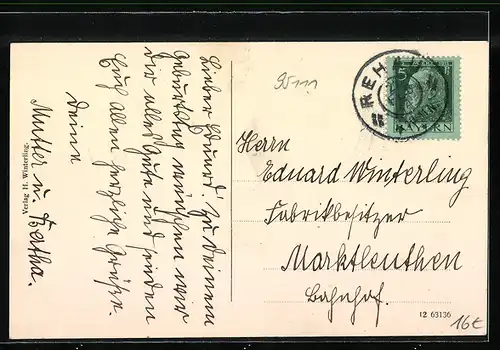 Lieber Eduard! Zu Deinem
Geburtstag wünschen wir
Dir alles Gute und senden
Euch allen herzliche Grüße.
Deine
Mutter u. Bertha.
Verlag H. Winterling.
95 m
REH
5
BAYERN
Herrn
Eduard Winterling
Fabrikbesitzer
Marktleuthen
Bahnhof.
12 63136
16€